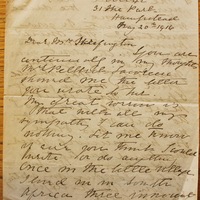 31 The Park
Hampstead
May 20th 1916
Dear Mrs Skeffington
You are
continually in my thoughts
Mrs Pethick Lawrence
showed me the letter
you wrote to her
My great sorrow is
that with all my
sympathy I can do
nothing. Let me know
if ever you think I could
write or do anything
Once in the little village
I lived in in South
Africa three innocent